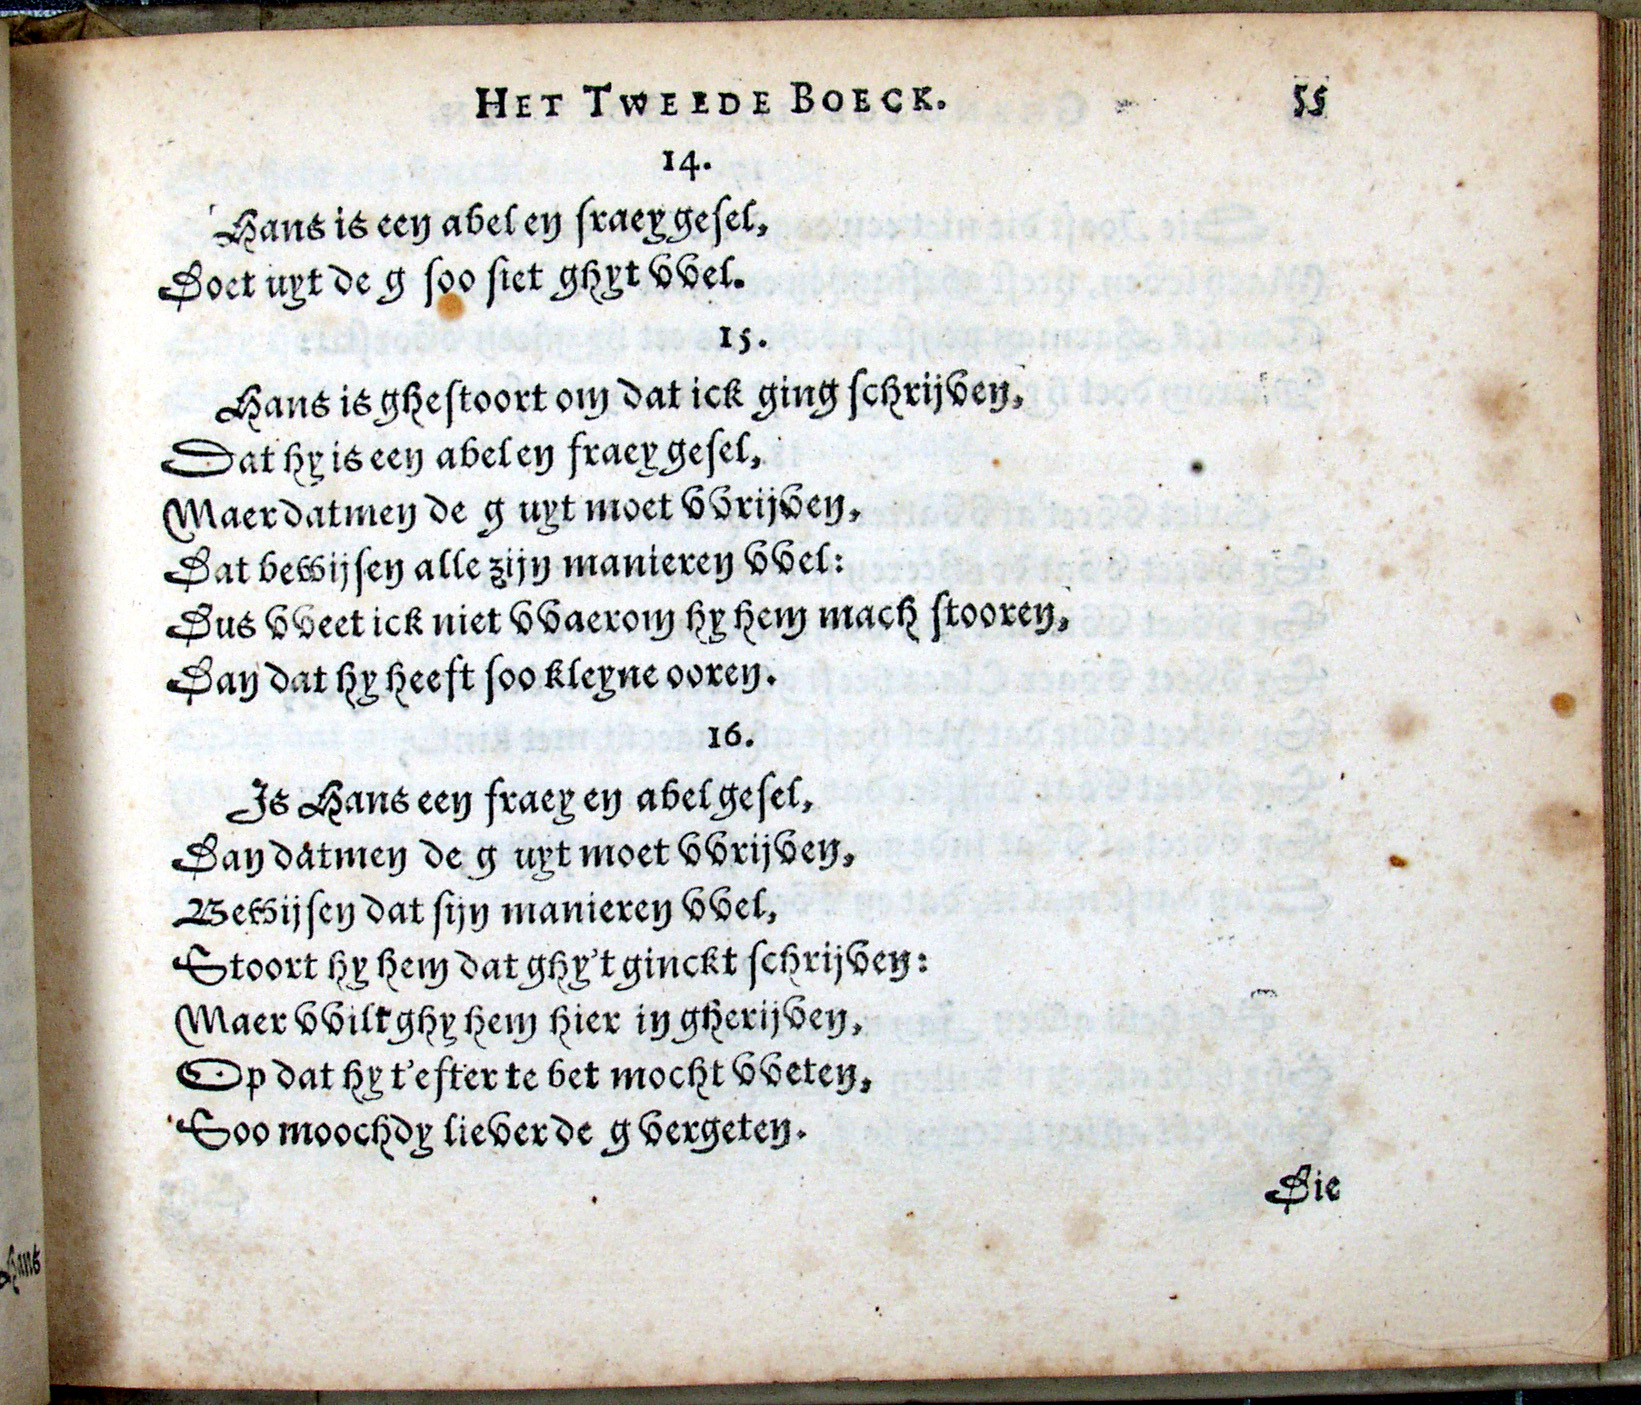 HET TWEEDE BOECK. 55
14.
Hans is een abel en fraey gesel,
Doet uyt de g soo siet ghyt vvel.
15.
Hans is ghestoort om dat ick ging schrijven,
Dat hy is een abel en fraey gesel,
Maer datmen de g uyt moet vvrijven,
Dat bewijsen alle zijn manieren vvel:
Dus vveet ick niet vvaerom hy hem mach stooren,
Dan dat hy heeft soo kleyne ooren.
16.
Is Hans een fraey en abel gesel,
Dan datmen de g uyt moet vvrijven,
Bewijsen dat sijn manieren vvel,
Stoort hy hem dat ghy't ginckt schrijven:
Maer vvilt ghy hem hier in gherijven,
Op dat hy t'efter te bet mocht vveten,
Soo moochdy liever de g vergeten.
Die
Hans